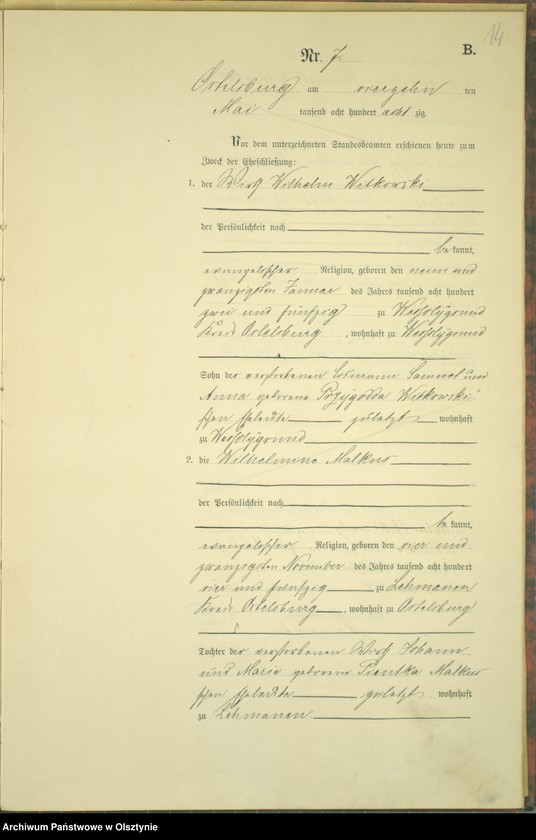 14
B.
Nr. 7.
Ortelsburg am vierzehn ten
Mai tausend acht hundert acht zig.
Vor dem unterzeichneten Standesbeamten erschienen heute zum
Zweck der Eheschließung:
1. der Wirth Wilhelm Witkowski
der Persönlichkeit nach
be kannt,
evangelischer Religion, geboren den neun und
zwanzigsten Januar des Jahres tausend acht hundert
zwei und fünfzig zu
Kreis Ortelsburg, wohnhaft zu
Sohn der verstorbenen Samuel und
Anna geborene Przygodda Witkowski'
schen Eheleute zuletzt wohnhaft
zu
2. die Wilhelmine Malkus
der Persönlichkeit nach
be kannt,
evangelischer Religion, geboren den vier und
zwanzigsten November des Jahres tausend acht hundert
vier und fünfzig zu Lehmanen
Kreis Ortelsburg, wohnhaft zu Ortelsburg
Tochter der verstorbenen Wirth Johann
und Marie geborene Pientka Malkus'
schen Eheleute zuletzt wohnhaft
zu Lehmanen.
Archiwum Państwowe w Olsztynie